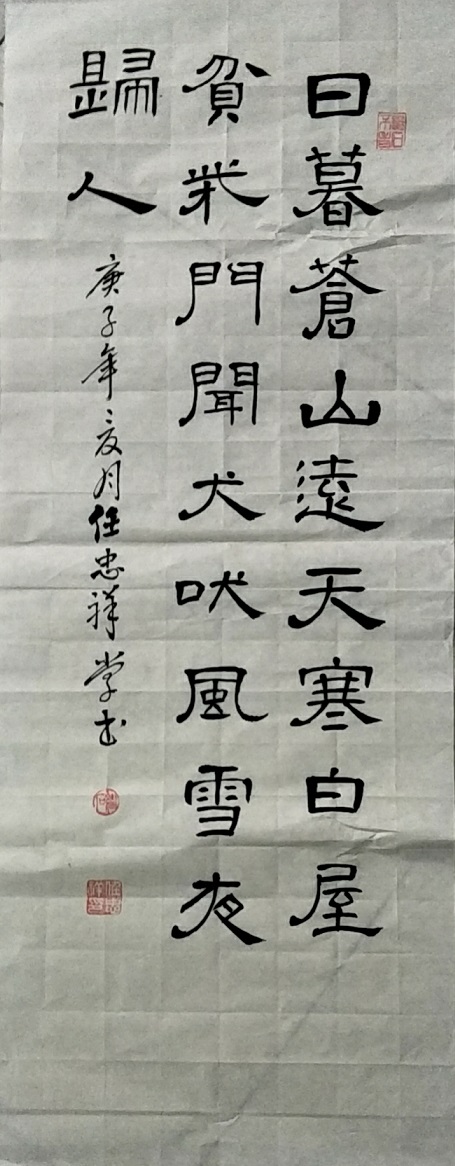 日暮蒼山遠天寒白屋
貧柴門聞犬吠風雪夜
歸人
庚子年之夏月任忠祥学书